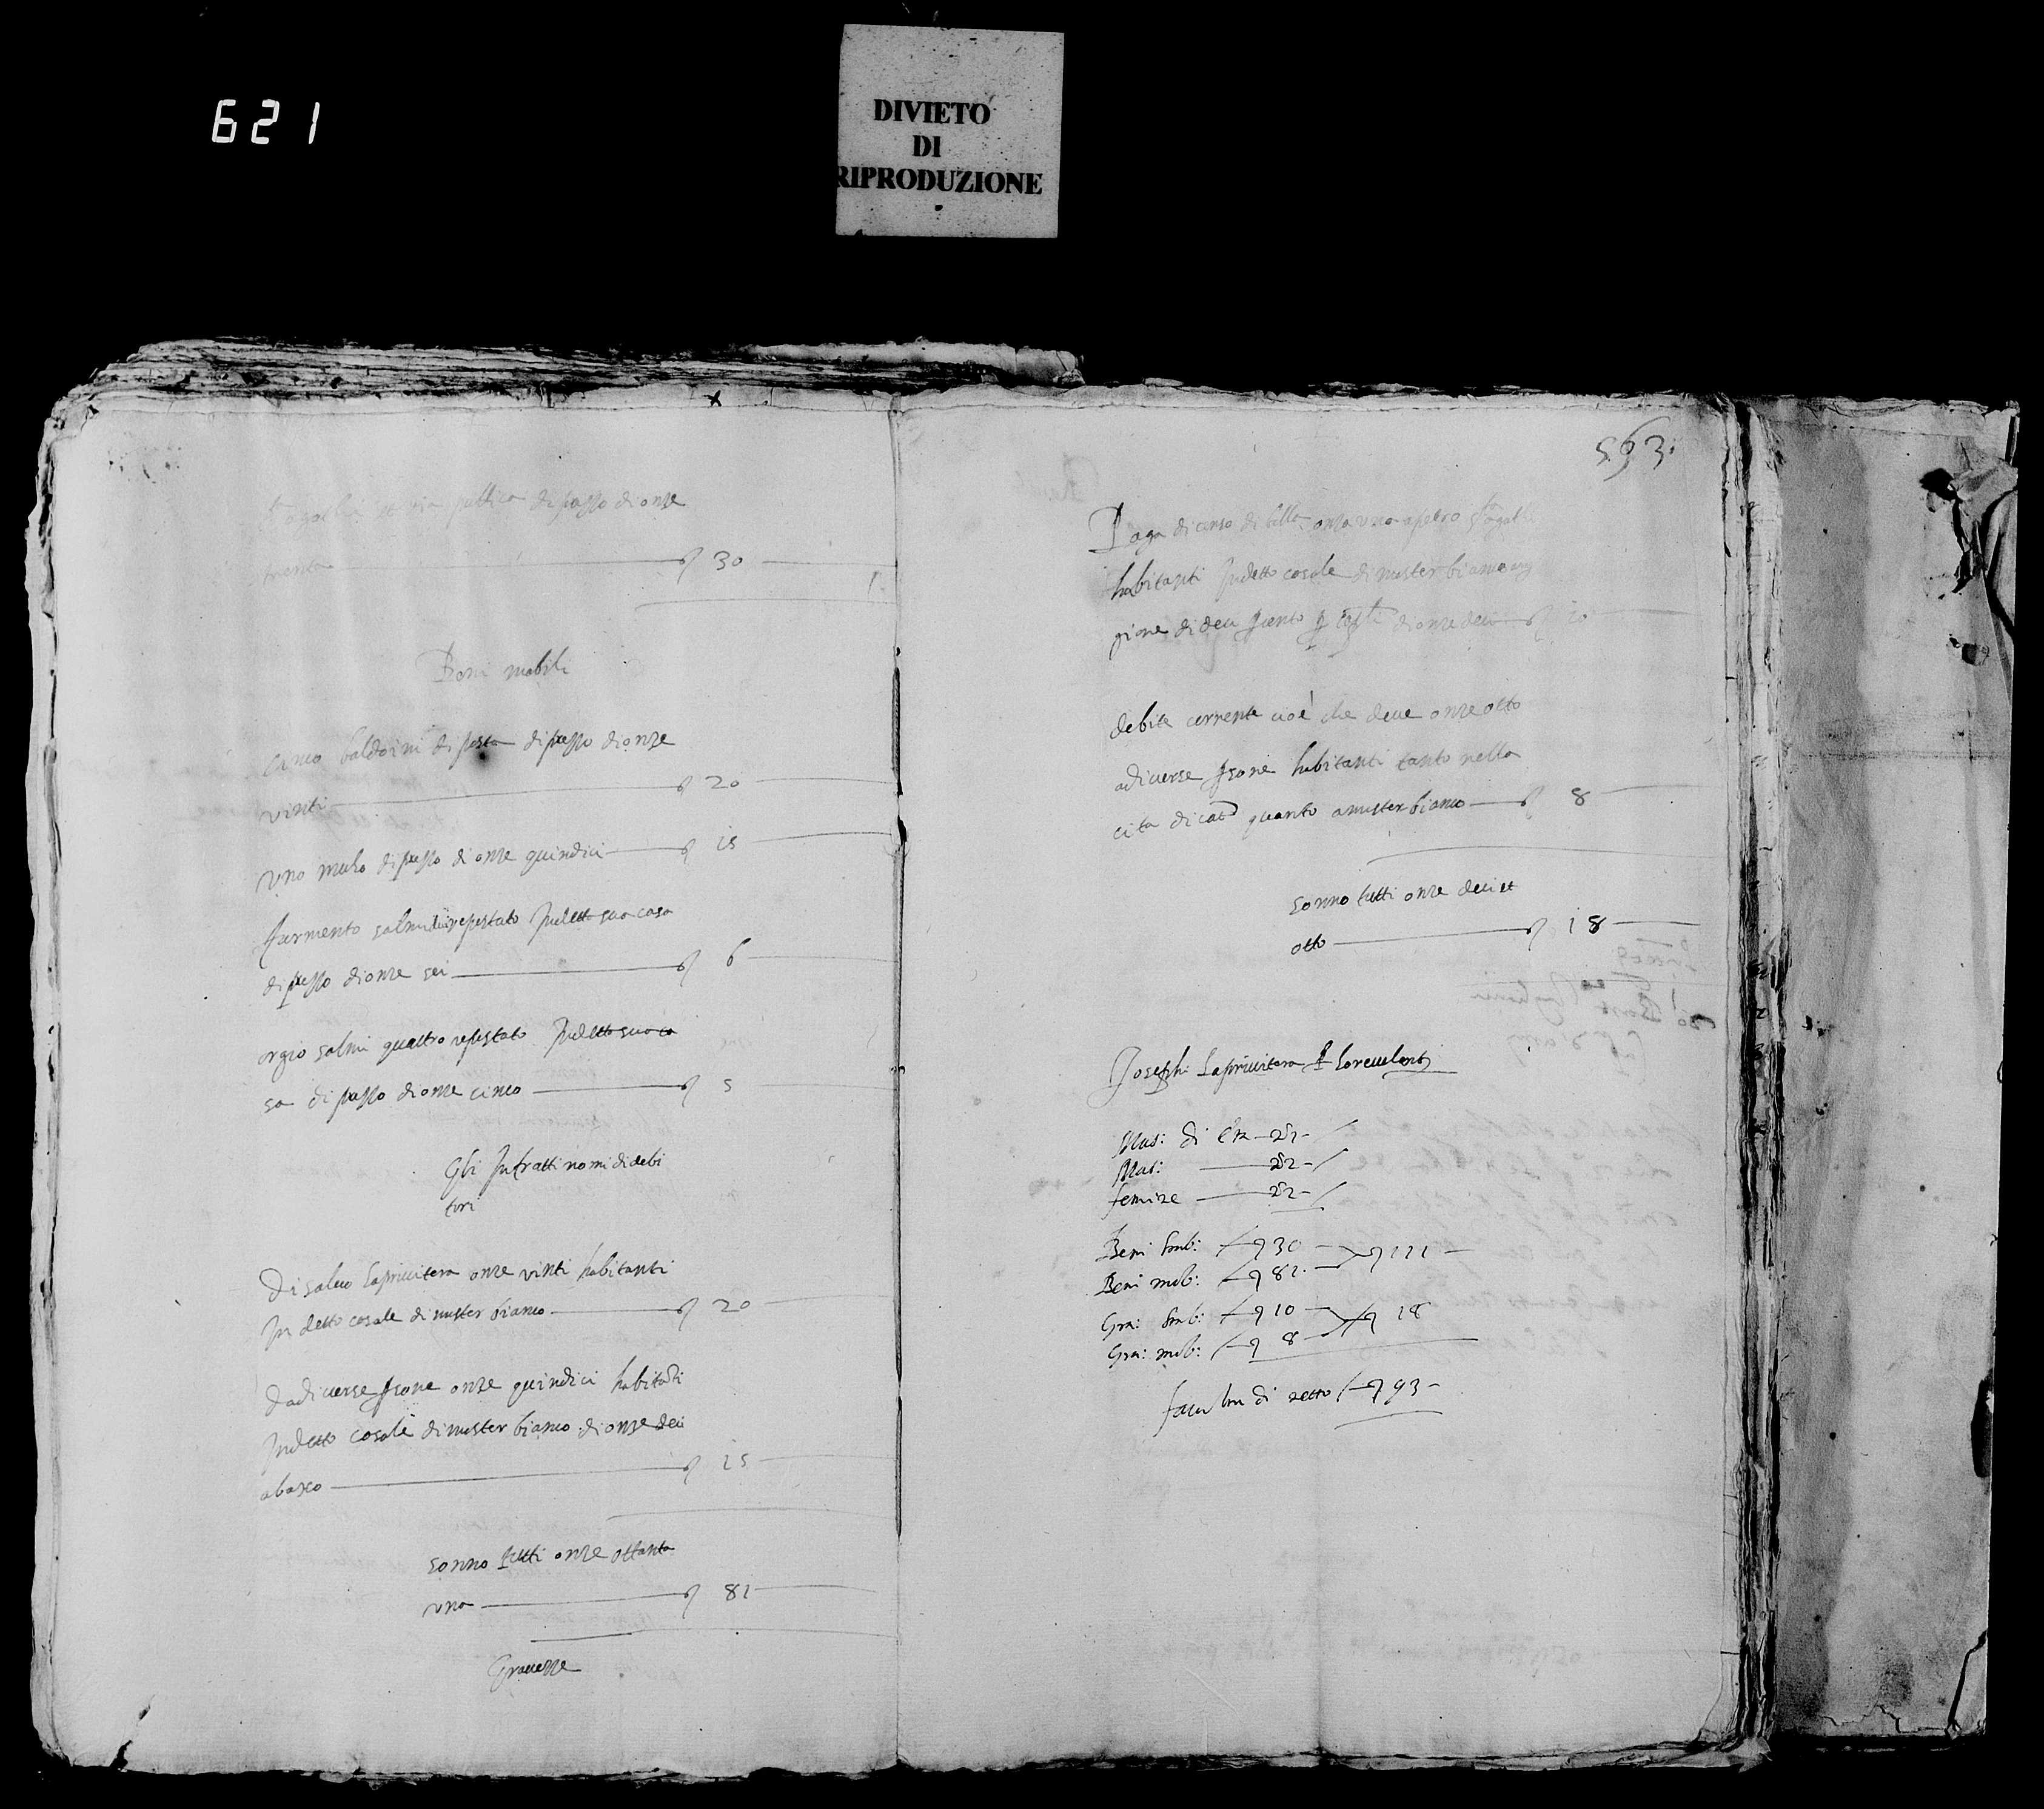 621
DIVIETO
DI
RIPRODUZIONE
et via publica di prezzo di onze
trenta 30
Beni mobili
cinco baldovini di sesta di prezzo di onze
vinti 20
uno mulo di prezzo di onze quindici 15
furmento salmi repostato in detta sua casa
di prezzo di onze sei 6
orgio salmi quattro repostato in detta sua ca
sa di prezzo di onze cinco 5
Gli infratti nomi di debi
tori
Di salvo laprivitera onze vinti habitanti
in detto casale di muster bianco 20
da diverse psone onze quindici habitāti
in detto casale di muster bianco di onze deci
abaxo 15
sonno tutti onze ottanta
una 81
Gravezze
593
Paga di censo di bolla onza una a petro
habitanti in detto casale di muster bianco
gione di deci p cento p di onze deci 10
debita corrente cioè che deve onze otto
a diverse psone habitanti tanto nella
cita di cat.ᵃ quanto a muster bianco 8
sonno tutti onze deci et
otto 18
Joseph laprivitera
Mas: di 21
Mas: 22
femine 22
Beni smb: 30 111
Beni mob: 81
Gra: smb: 10 18
Gra: mob: 8
faculta di netto 93